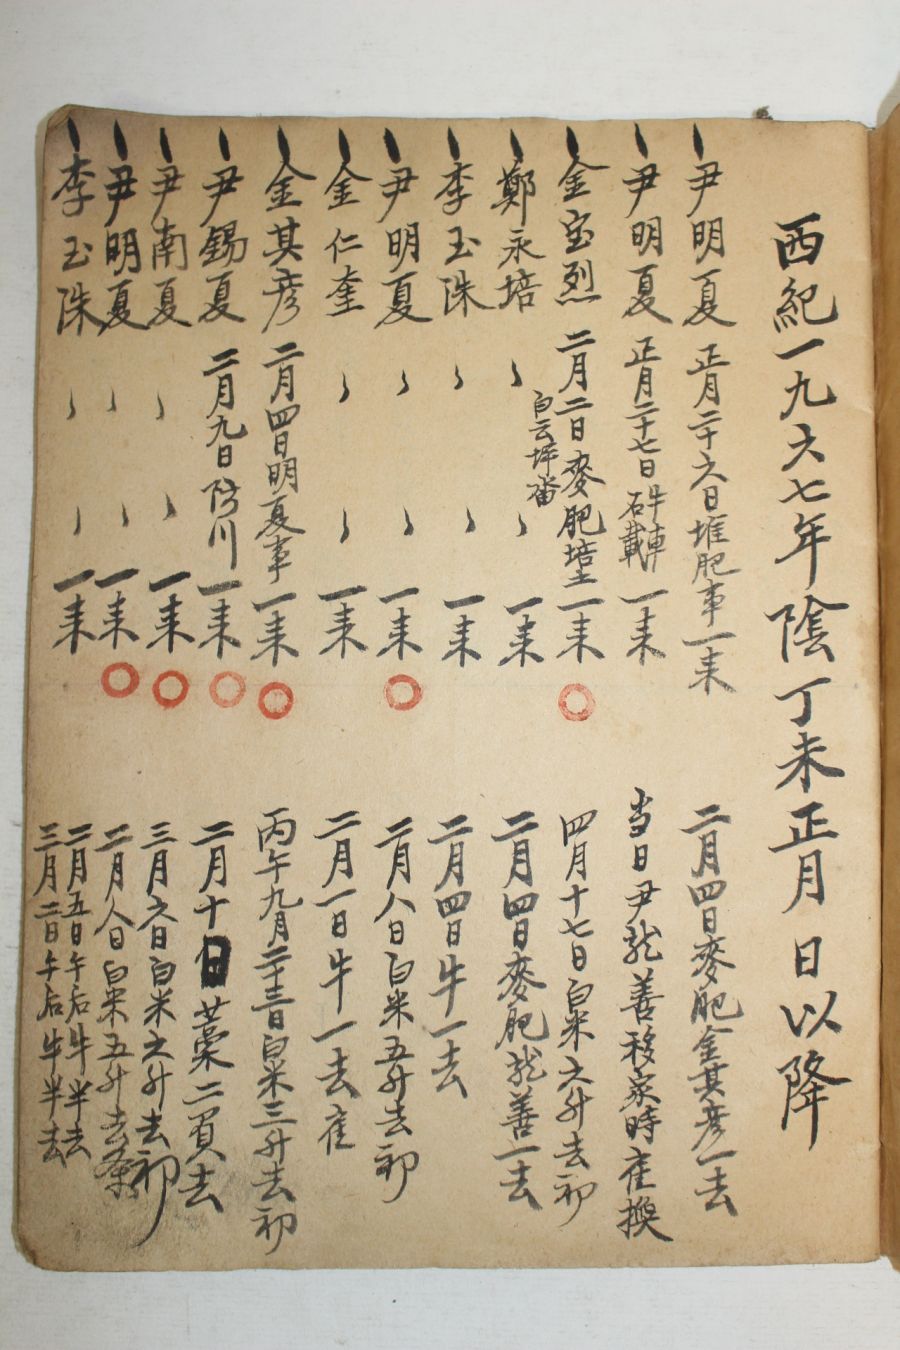 西紀一九六七年陰丁未正月 日以降
尹明夏 正月二十六日堆肥事一来 二月四日麥肥金其彦一去
尹明夏 正月二十七日 牛車石載 一来 当日尹龍善移家時雇換
金宝烈 二月二日麥肥培土一来 四月十七日白米六升去初
白云坪畓
鄭永培 〃 〃 一来 二月四日麥肥龍善一去
李玉洙 〃 〃 一来 二月四日牛一去
尹明夏 〃 〃 一来 二月八日白米五升去初
金仁奎 〃 〃 一来 二月一日牛一去雇
金其彦 二月四日明夏事一来 丙午九月二十三日白米三升去初
尹錫夏 二月九日防川一来 二月十日藁二負去
尹南夏 〃 〃 一来 三月六日白米六升去初
尹明夏 〃 〃 一来 二月八日白米五升去条
李玉洙 〃 〃 一来 二月五日午后牛半去
三月二日午后牛半去